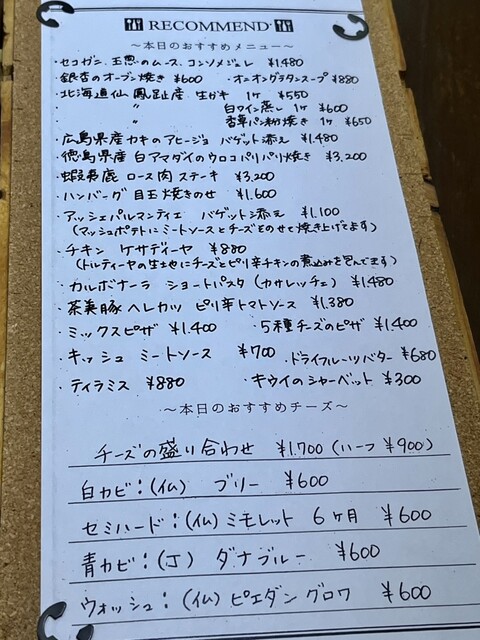 RECOMMEND
～本日のおすすめメニュー～
・セコガニ 玉葱のムース コンソメジュレ ¥1,480
・銀杏のオーブン焼き ¥600 ・オニオングラタンスープ ¥880
・北海道仙鳳趾産 生ガキ 1ヶ ¥550
〃 白ワイン蒸し 1ヶ ¥600
〃 香草パン粉焼き 1ヶ ¥650
・広島県産カキのアヒージョ バゲット添え ¥1,480
・徳島県産 白アマダイのウロコパリパリ焼き ¥3,200
・蝦夷鹿 ロース肉 ステーキ ¥3,200
・ハンバーグ 目玉焼きのせ ¥1,600
・アッシェパルマンティエ バゲット添え ¥1,100
(マッシュポテトにミートソースとチーズをのせて焼き上げてます)
・チキン ケサディーヤ ¥880
(トルティーヤの生地にチーズとピリ辛チキンの煮込みを包んでます)
・カルボナーラ ショートパスタ (カサレッチェ) ¥1,480
・茶美豚ヘレカツ ピリ辛トマトソース ¥1,380
・ミックスピザ ¥1,400 ・5種チーズのピザ ¥1,400
・キッシュ ミートソース ¥700 ・ドライフルーツバター ¥680
・ティラミス ¥880 ・キウイのシャーベット ¥300
～本日のおすすめチーズ～
チーズの盛り合わせ ¥1,700 (ハーフ ¥900)
白カビ:(仏) ブリー ¥600
セミハード:(仏) ミモレット 6ヶ月 ¥600
青カビ:(J) ダナブルー ¥600
ウォッシュ:(仏) ピエダングロワ ¥600